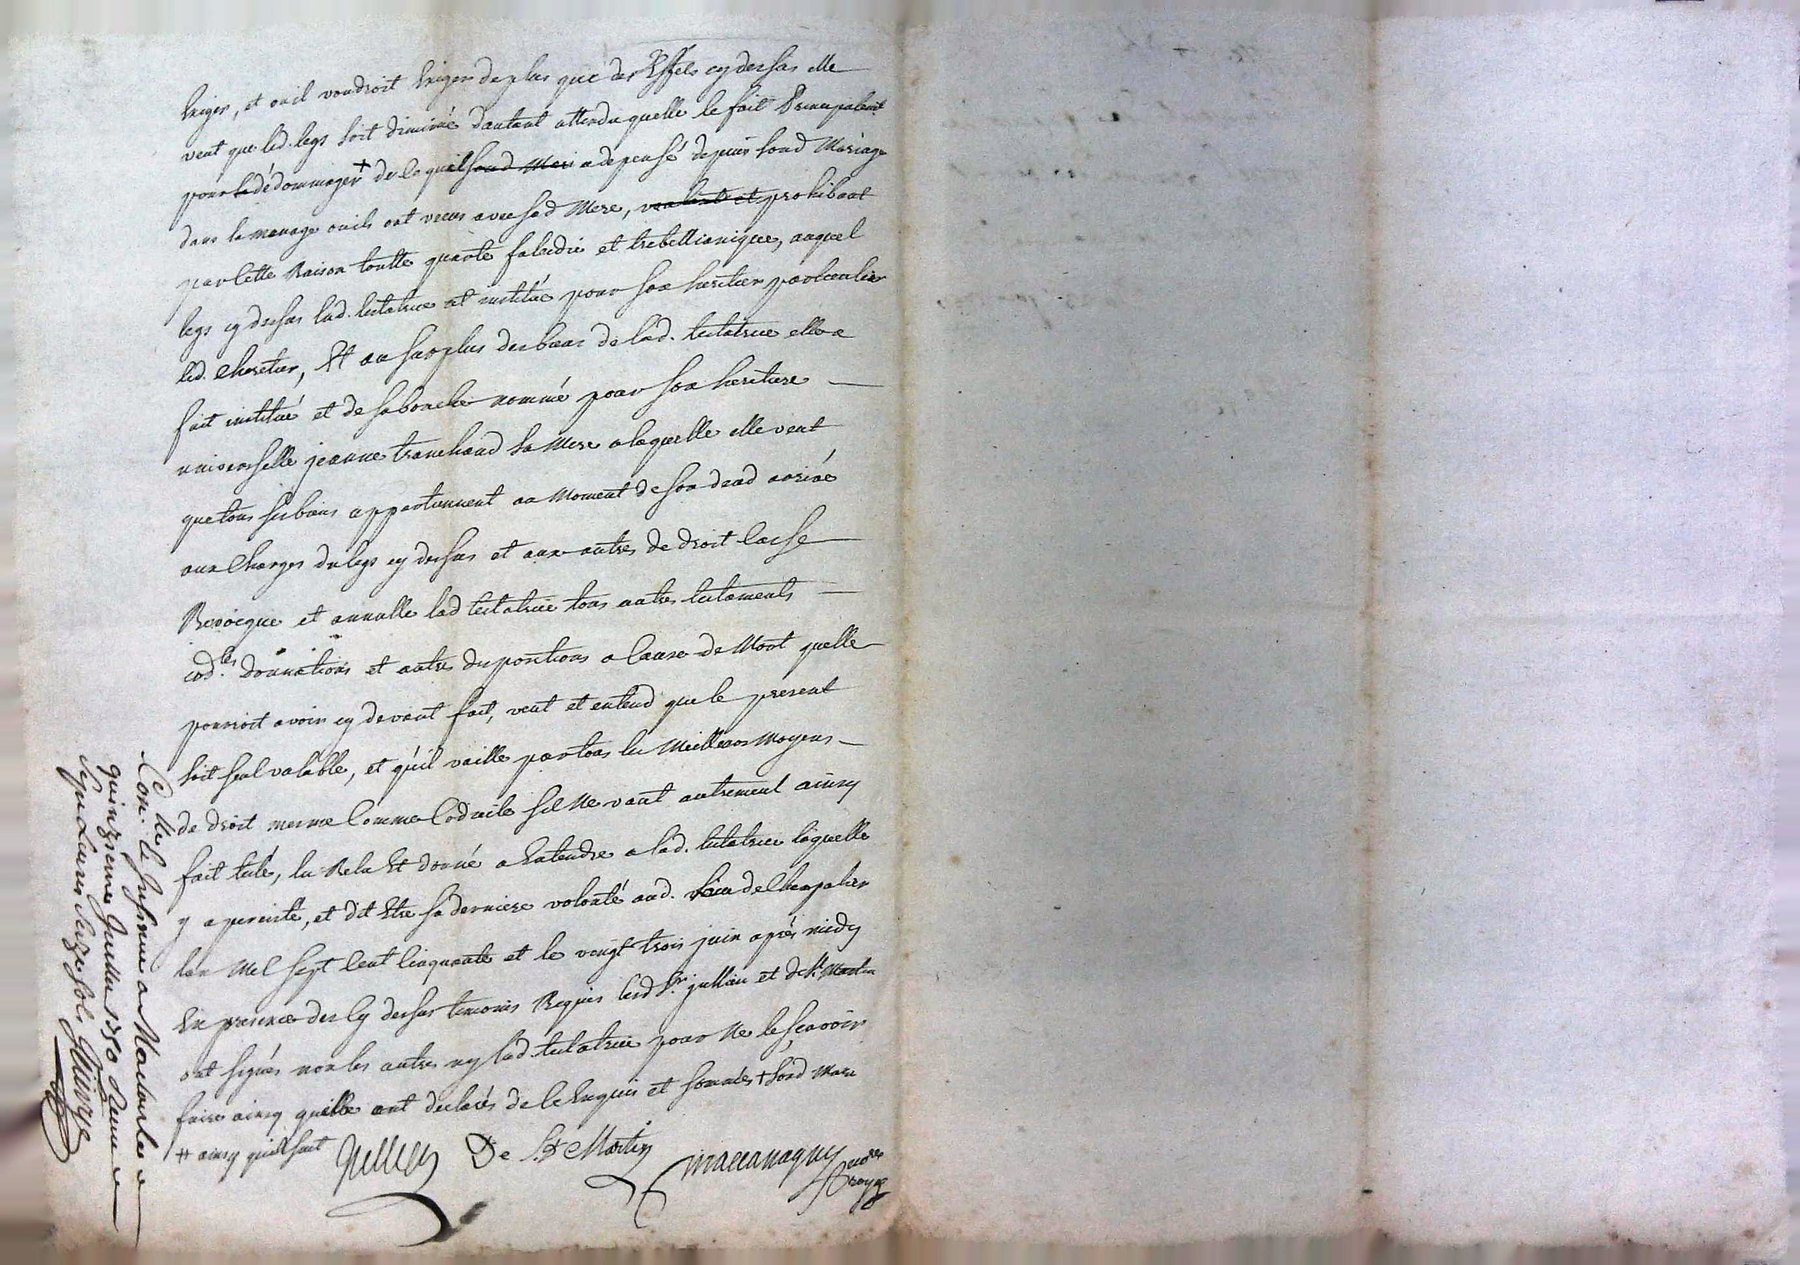 Exiger, et ou il voudroit Exiger de plus que des Effets cy dessus elle
veut que led. legs soit diminué dautant attendu quelle le fait Principalemt
pour le dédommager + de ce quil soud Mari a depensé depuis soud Mariage
dans le menage ou ils ont vecus avec sad Mere, voulant et prohibant
par cette Raison toutte quarte falcidie et trebellianique, auquel
legs cy dessus lad. testatrice et institue pour son heritier particulier
led. Charetier, Et au surplus des biens de lad. testatrice elle a
fait institué et de sa bouche nommé pour son heritiere
universelle jeanne tranchand sa Mere a laquelle elle veut
que tous ses biens appartiennent au Moment de son deced arrivé
aux Charges du legs cy dessus et aux autres de droit Casse
Revocque et annulle lad testatrice tous autres testaments
codles donnations et autres dispositions a Cause de Mort quelle
pourroit avoir cy devant fait, veut et entend que le present
soit seul valable, et qu'il vaille par tous les Meilleurs Moyens
de droit mesme Comme Codicile sil ne vaut autrement ainsy
fait testé, lu Relu Et donné a Entendre a lad. testatrice laquelle
y a persisté, et dit Etre sa derniere volonté aud. lieu de
lan Mil sept Cent Cinquante et le vengt trois juin après midy
En presence des Cy dessus temoins Requis lesd Sr. jullien et de St. Martin
ont signés non les autres ny lad. testatrice pour Ne le sçavoir
faire ainsy quelle ont declarés de Ce Enquis et sommés + soud Mari
# ainsy quil sont
Jullien De St Martin maccanaguy nore royal
Con. lle Insinué a
quinzieme Juillet 1750 Reçu